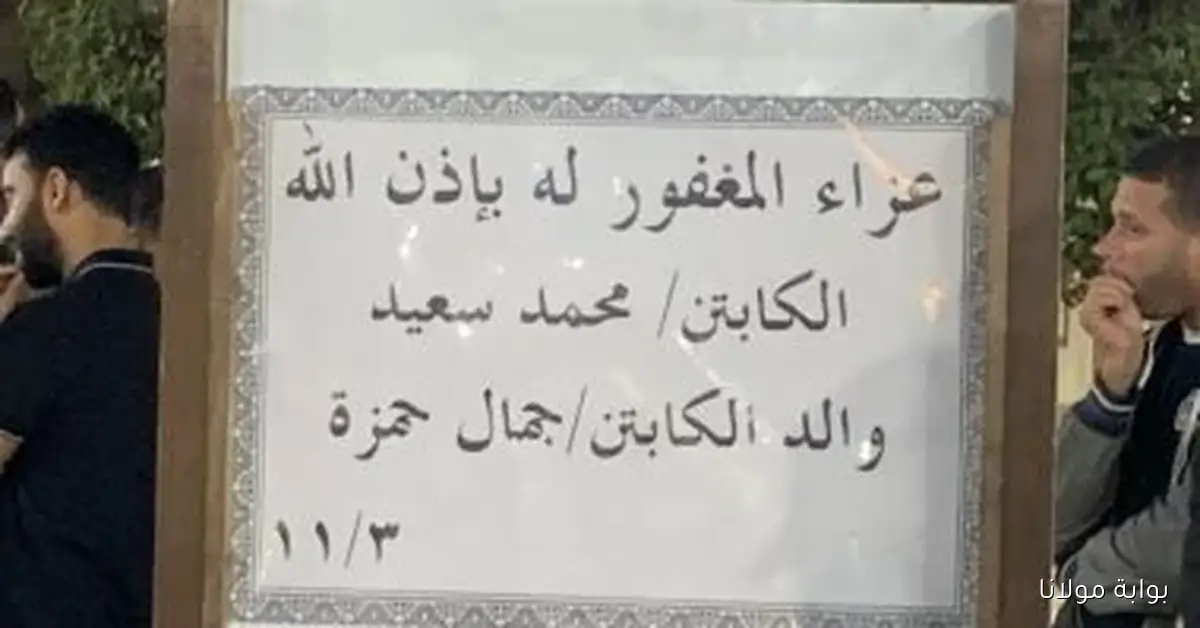 عزاء المغفور له بإذن الله
الكابتن/ محمد سعيد
والد الكابتن/جمال حمزة
١١/٣
بوابة مولانا